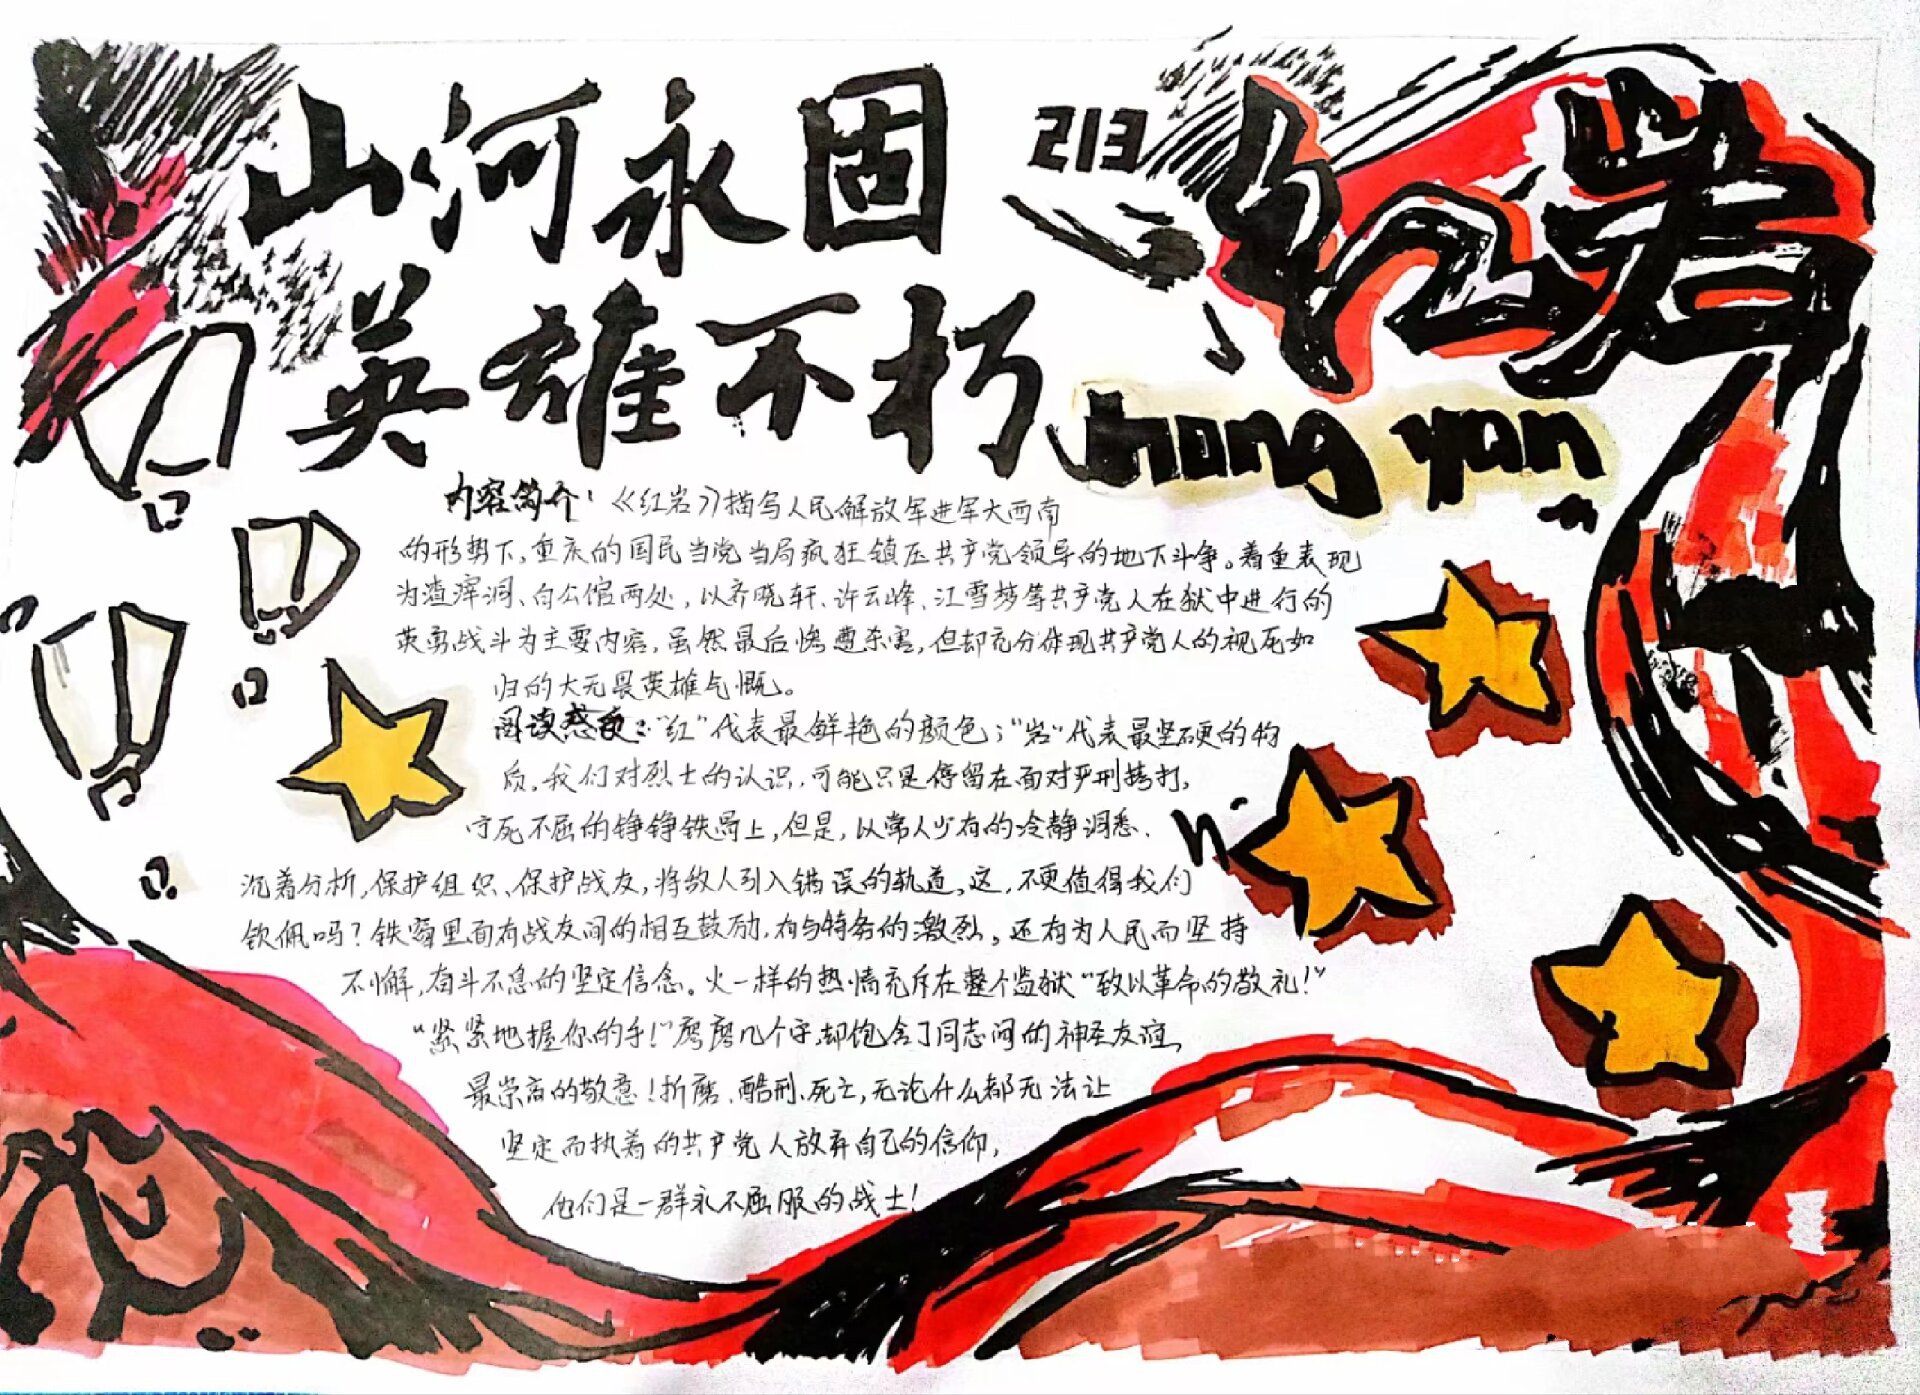 山河永固
英雄不朽
213
红岩
hong yan
内容简介：《红岩》描写人民解放军进军大西南
的形势下，重庆的国民当党当局疯狂镇压共产党领导的地下斗争。着重表现
为渣滓洞、白公馆两处，以齐晓轩、许云峰、江雪梦等共产党人在狱中进行的
英勇战斗为主要内容，虽然最后惨遭杀害，但却充分体现共产党人的视死如
归的大无畏英雄气慨。
阅读感受："红"代表最鲜艳的颜色；"岩"代表最坚硬的物
质，我们对烈士的认识，可能只是停留在面对严刑拷打，
宁死不屈的铮铮铁骨上，但是，以常人少有的冷静洞悉、
沉着分析，保护组织、保护战友，将敌人引入错误的轨道，这，不更值得我们
钦佩吗？铁窗里面有战友间的相互鼓励，有与特务的激烈。还有为人民而坚持
不懈，奋斗不息的坚定信念。火一样的热情充斥在整个监狱"致以革命的敬礼！"
"紧紧地握你的手！"磨磨几个字，却饱含了同志间的神圣友谊，
最崇高的敬意！折磨、酷刑、死亡，无论什么都无法让
坚定而执着的共产党人放弃自己的信仰，
他们是一群永不屈服的战士！